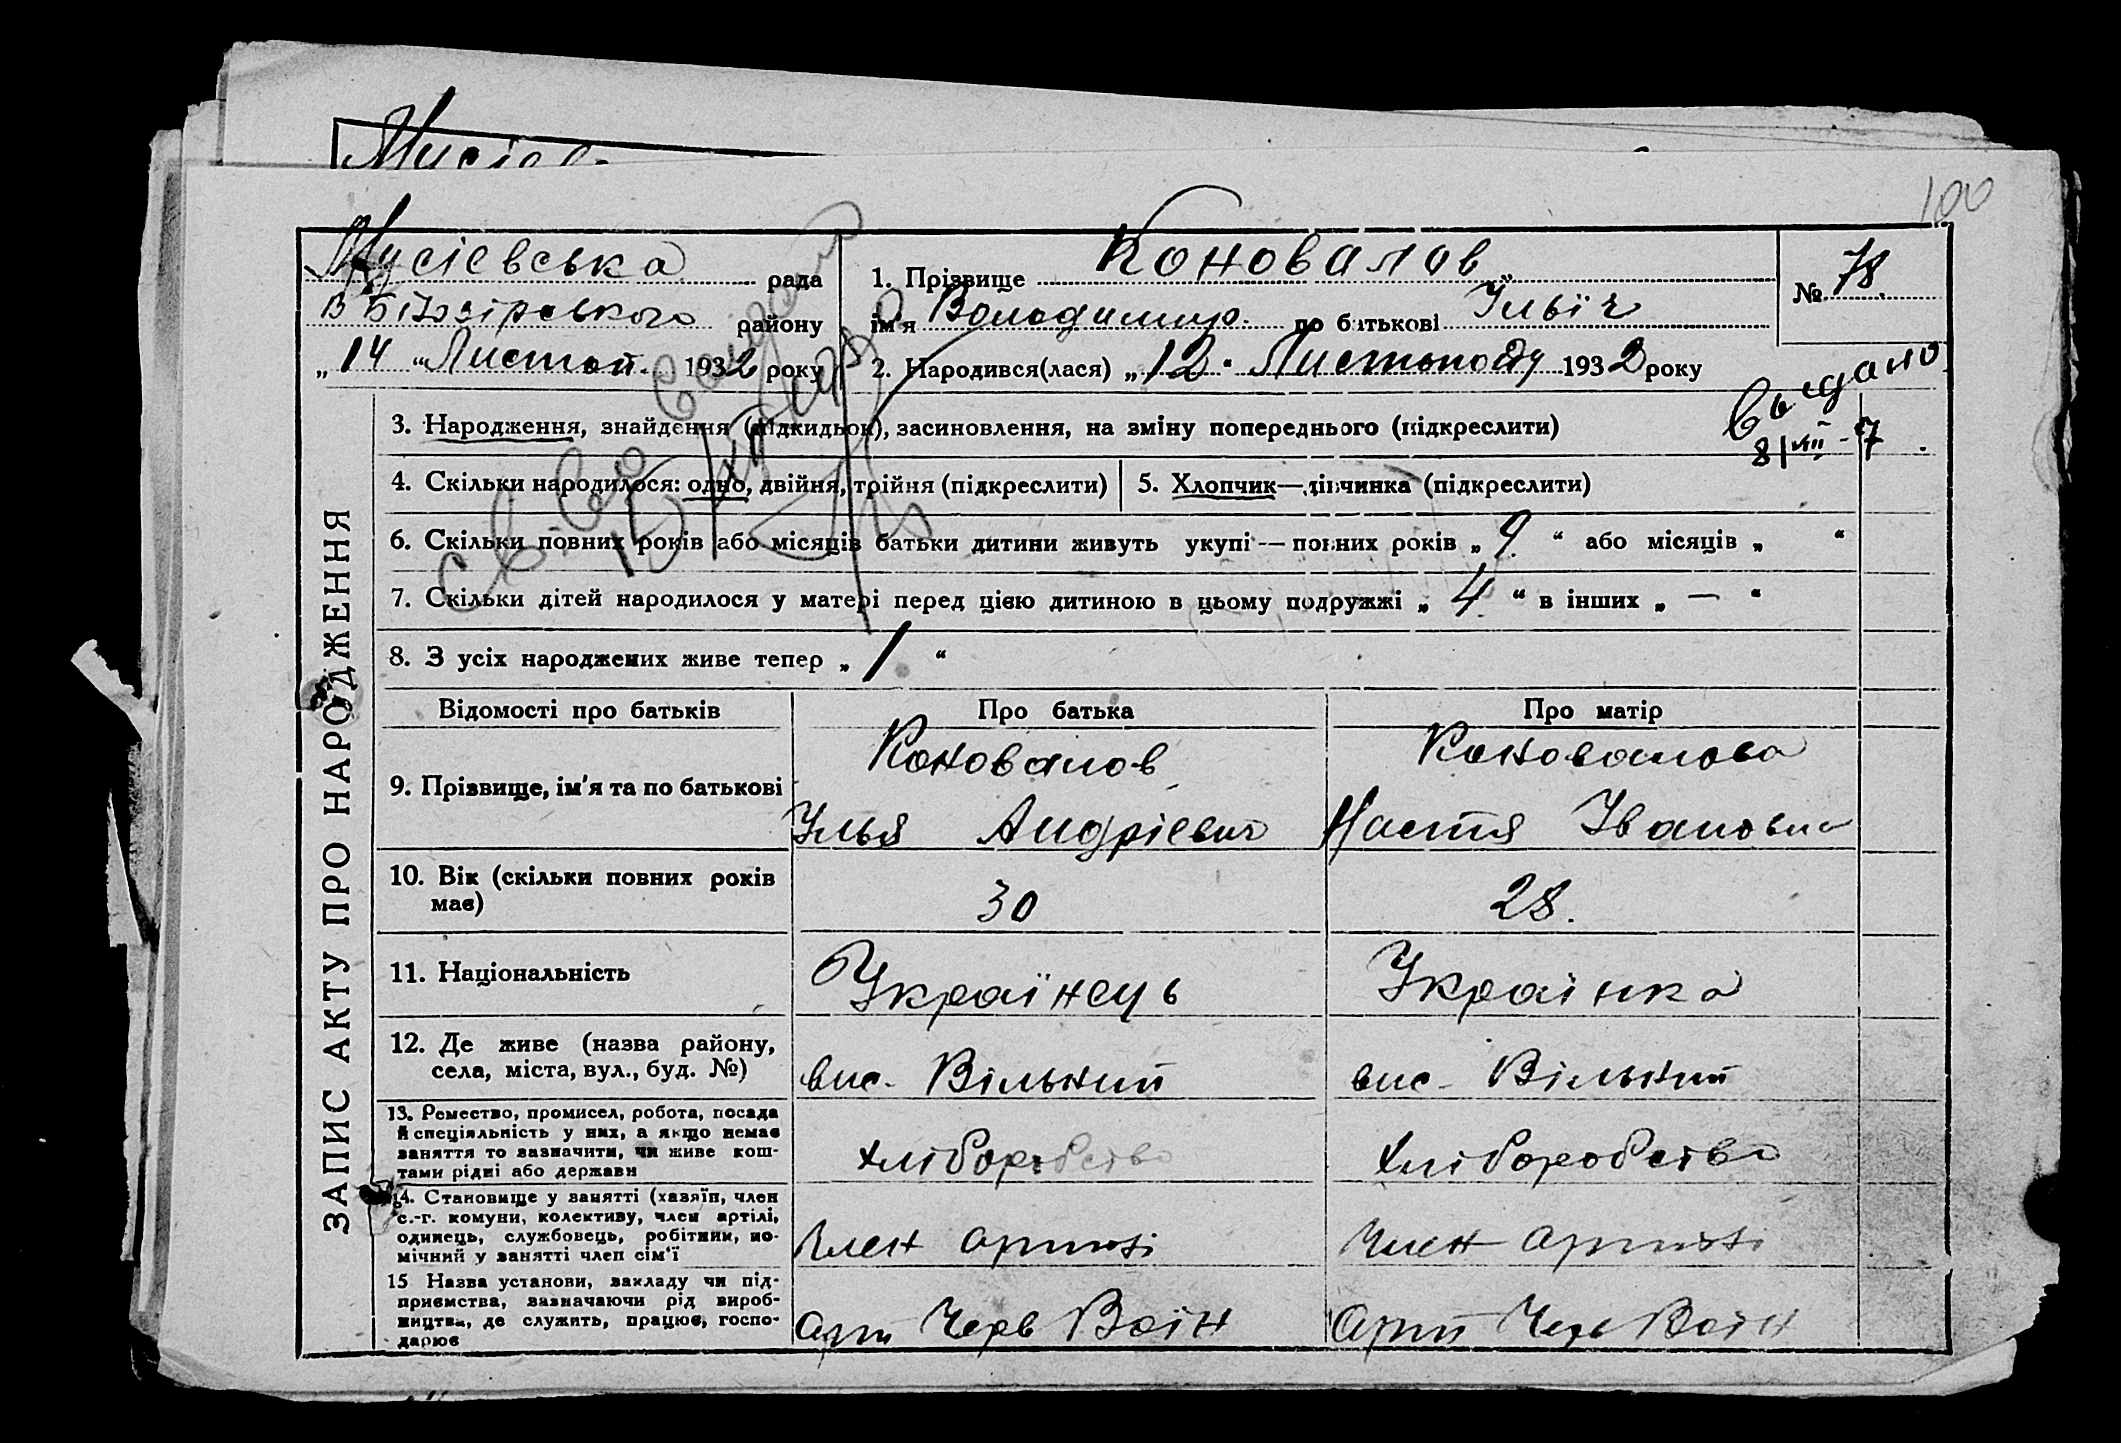 Мусієв
100
Мусієвська рада
В Бітозірського району
„ 14 “ Листоп. 1932 року
1. Прізвище Коновалов
ім'я Володимир. по батькові Ільїч
№ 78.
2. Народився(лася) „ 12 “ Листопаду 1932 року
выдано
8/VIII - 7
3. Народження, знайдення (підкидьок), засиновлення, на зміну попереднього (підкреслити)
4. Скільки народилося: одно, двійня, трійня (підкреслити)
5. Хлопчик—дівчинка (підкреслити)
6. Скільки повних років або місяців батьки дитини живуть укупі — повних років „ 9 “ або місяців „ “
7. Скільки дітей народилося у матері перед цією дитиною в цьому подружжі „ 4 “ в інших „ — “
8. З усіх народжених живе тепер „ 1 “
ЗАПИС АКТУ ПРО НАРОДЖЕННЯ
Відомості про батьків
Про батька
Про матір
9. Прізвище, ім'я та по батькові
Коновалов
Ілья Андрієвич
Коновалова
Настя Івановна
10. Вік (скільки повних років має)
30
28.
11. Національність
Українець
Українка
12. Де живе (назва району, села, міста, вул., буд. №)
вис. Вільний
вис. Вільний
13. Ремество, промисел, робота, посада
й спеціяльність у них, а якщо немає
заняття то зазначити, чи живе кош-
тами рідні або держави
хліборобство
хліборобство
14. Становище у занятті (хазяїн, член
с.-г. комуни, колективу, член артілі,
одинець, службовець, робітник, по-
мічний у занятті член сім'ї
Член артілі
Член артілі
15 Назва установи, закладу чи під-
приємства, зазначаючи рід вироб-
ництва, де служить, працює, госпо-
дарює
Арт Черв Воїн
Арт Черв Воїн